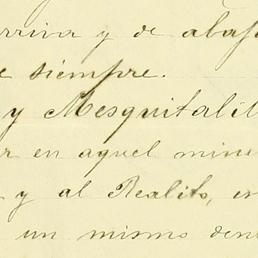 arriva y de abaj
e siempre.
y Mesquitalit
r en aquel mine
y al Realito, en
un mismo den